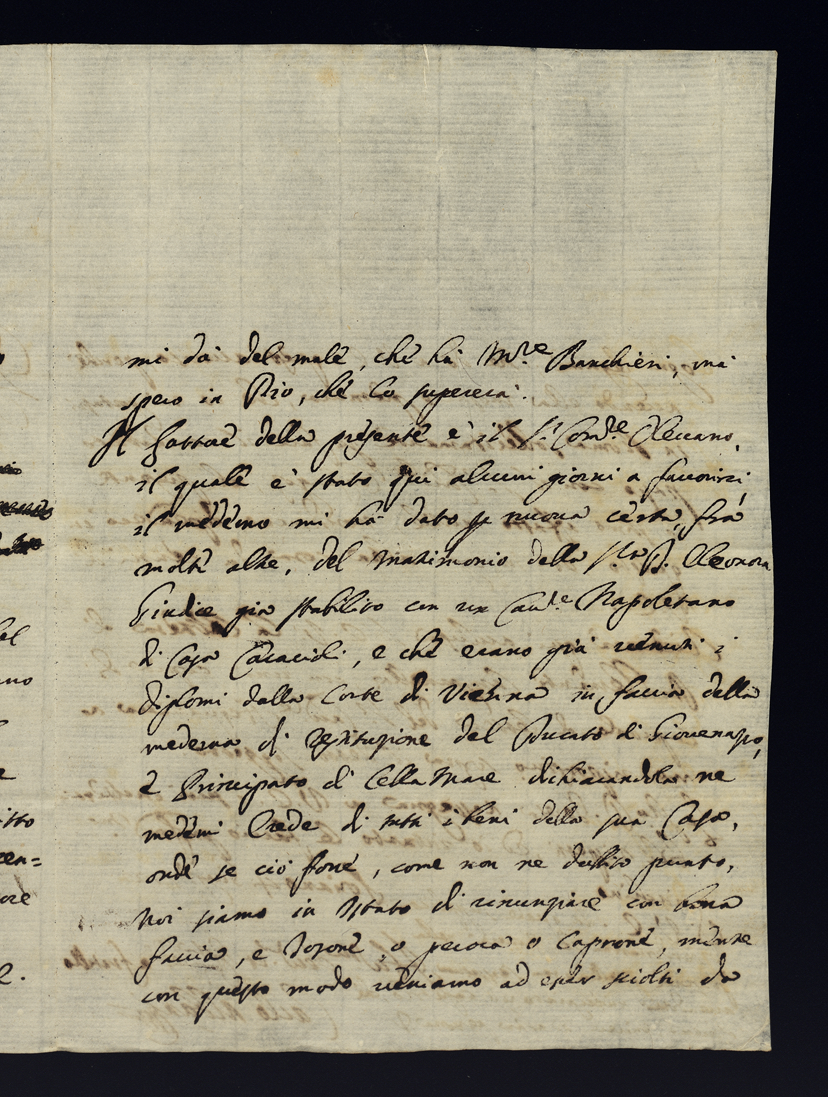 mi dà del male, che ha Mre. Banchieri, ma
spero in Dio, che lo supererà.
Il lattore della presente è il Sr. Comde. Olevano,
il quale è stato qui alcuni giorni a favorirci,
il medemo mi ha dato p nuova certa, frà
molte altre, del matrimonio della Sra. D. Eleonora
Giudice già stabilito con un Cavre. Napoletano
di Casa Caracioli, e che erano già venuti i
diplomi dalla Corte di Vienna in faccia della
medema di restituzione del Ducato di Giovenazzo,
e Principato di Cella Mare dichiarandola ne
medemi Erede di tutti i beni della sua Casa,
onde se ciò fosse, come non ne dubito punto,
noi siamo in stato di rinunziare con bona
faccia, e Tosone, o pecora o Caprone, mentre
con questo modo veniamo ad esser sciolti da